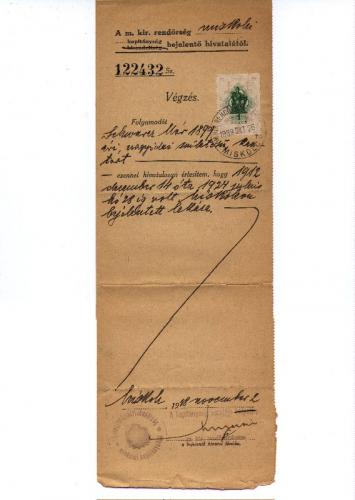 A m. kir. rendőrség miskolci
kapitányság
bejelentő hivatalától.
122432 Sz.
Végzés.
Folyamodót
Schwarcz Mór 1877
évi, nagyidai születésű, kan-
tort
— ezennel hivatalosan értesítem, hogy 1912
december 14 óta 1927 július
hó 28 ig volt Miskolcon
bejelentett lakása.
1938 OKT 26
MISKOLC
Miskolc, 1938 november 2
A kapitányság vezetője
a bejelentő hivatal főnöke.